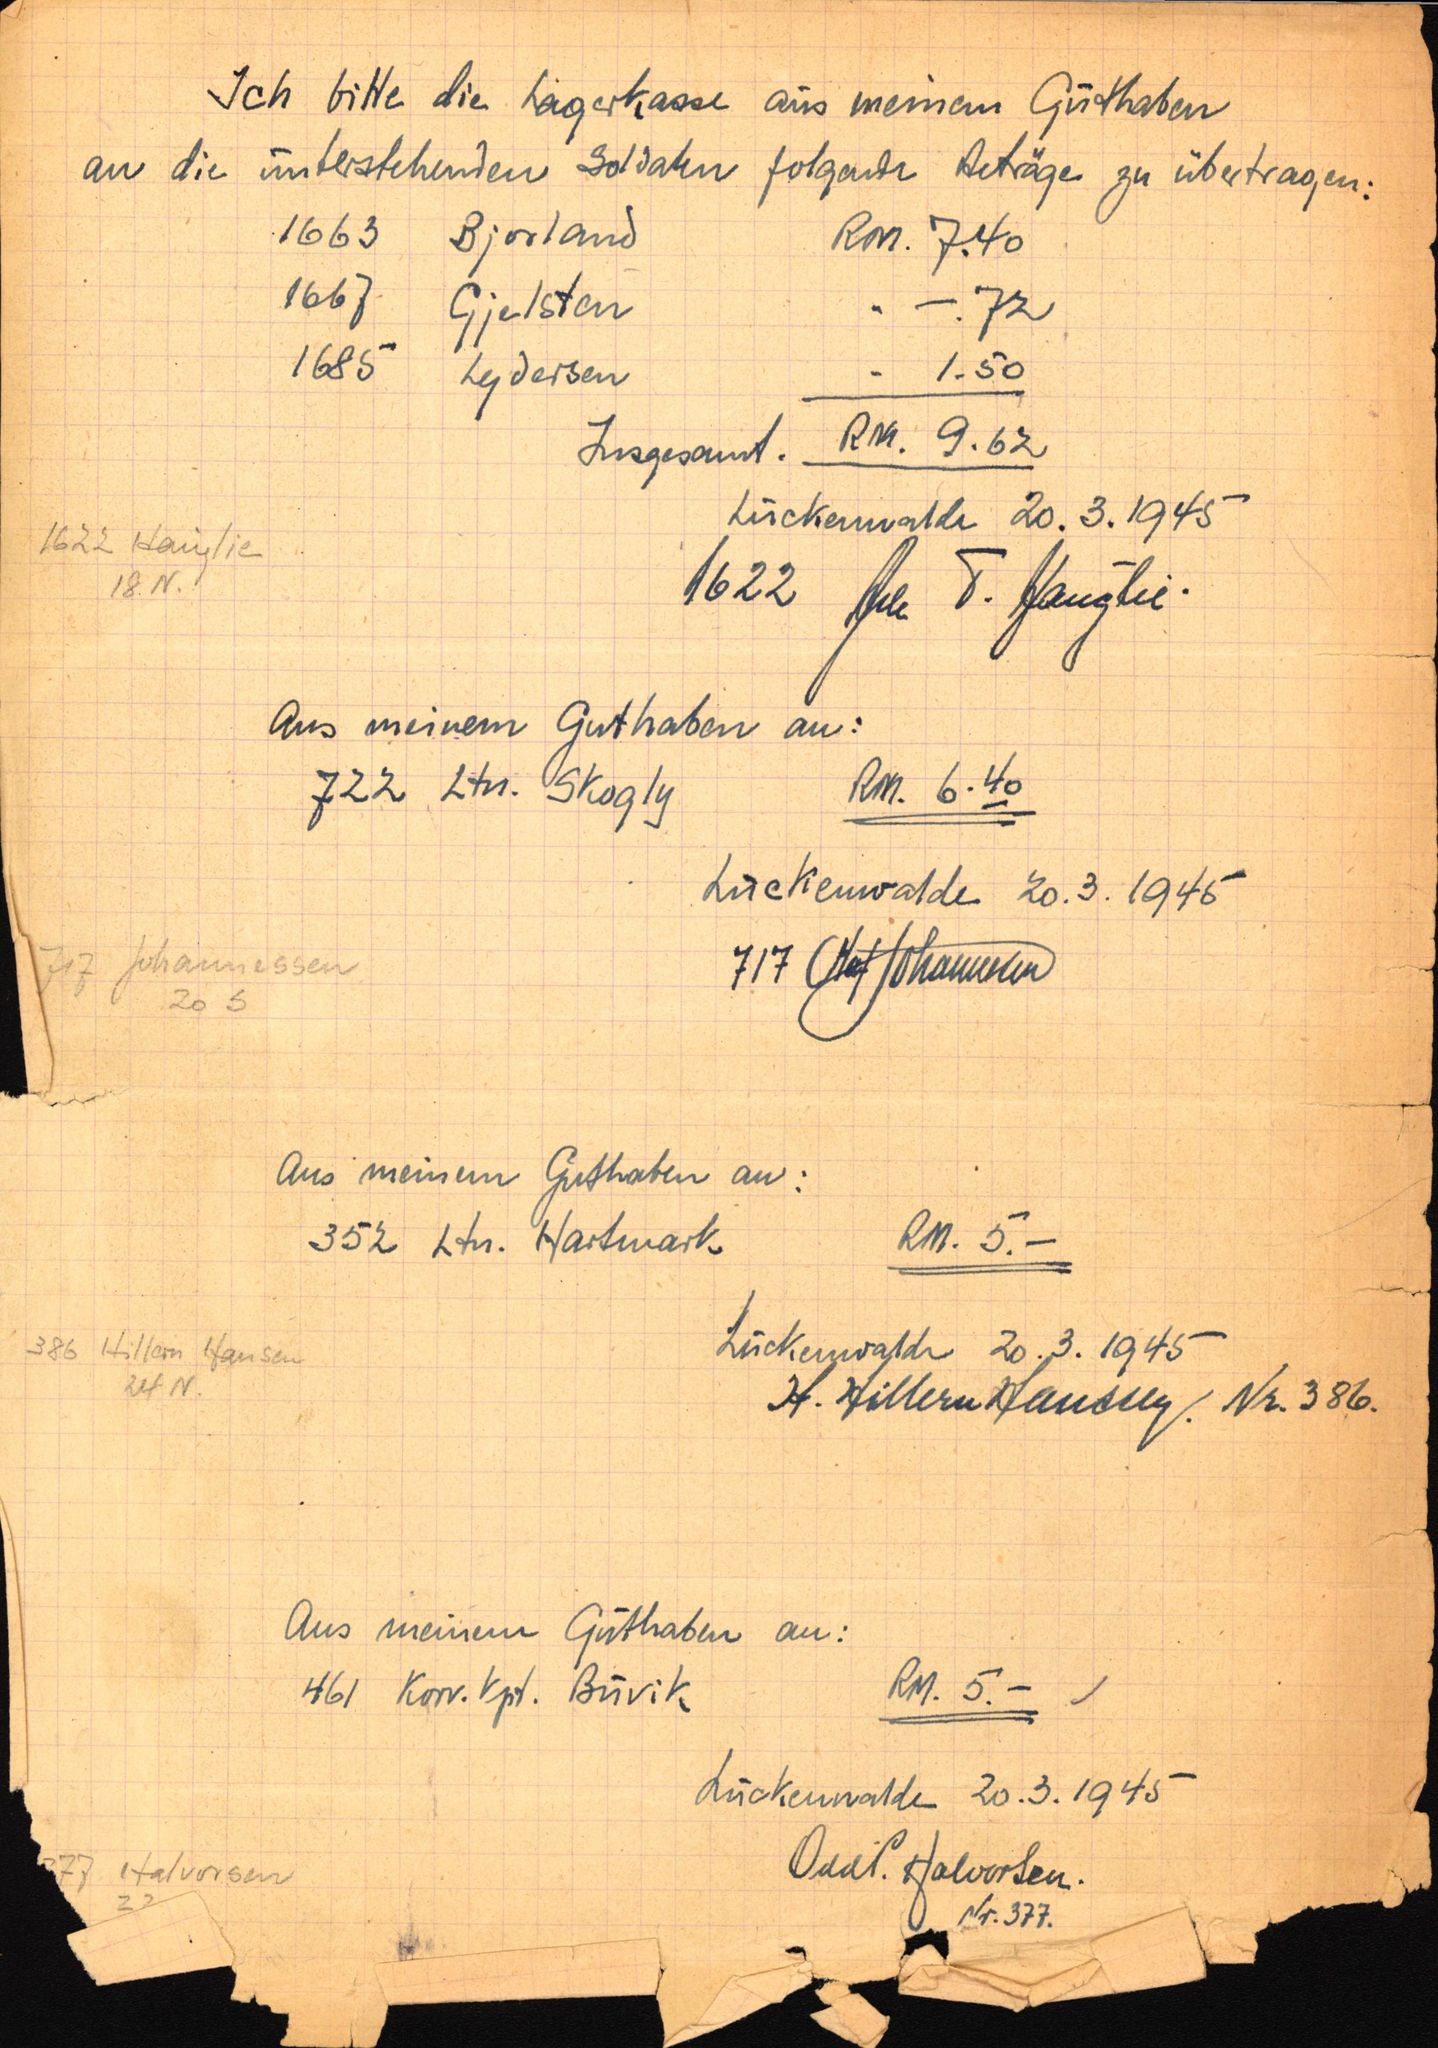 Ich bitte die Lagerkasse aus meinem Guthaben
an die untenstehenden Soldaten folgende Beträge zu übertragen:
1663 Bjorland RM. 7.40
1667 Gjelsten " —.72
1685 Lydersen " 1.50
Insgesamt. RM. 9.62
Luckenwalde 20.3.1945
1622 Hauglie
18 N.
1622 T. Hauglie.
Aus meinem Guthaben an:
722 Ltn. Skogly RM. 6.40
Luckenwalde 20.3.1945
717 Johannessen
20 S
717 Olaf Johannessen
Aus meinem Guthaben an:
352 Ltn. Hartmark RM. 5.—
Luckenwalde 20.3.1945
386 Hillern Hansen
24 N.
H. Hillern Hanssen, Nr. 386.
Aus meinem Guthaben an:
461 Korv. Kpt. Buvik RM. 5.—
Luckenwalde 20.3.1945
377 Halvorsen
22
Odd P. Halvorsen.
Nr. 377.